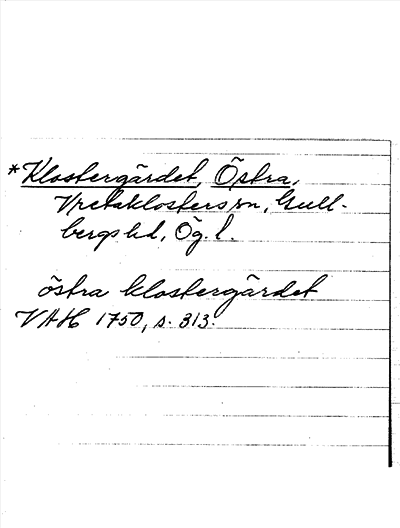 *Klostergärdet, Östra,
Vretaklosters sn, Gull-
bergs hd, Ög. l.
östra klostergärdet
VAH 1750, s. 313.